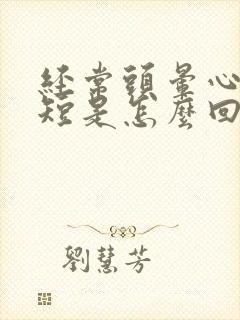 經常頭暈心
短是怎麼回
劉慧芳